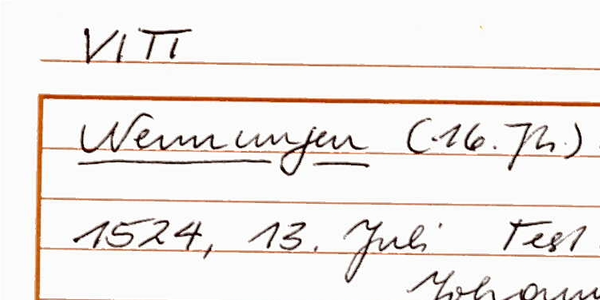 VITT
Nennungen (16. Jh.)
1524, 13. Juli Test
Johann